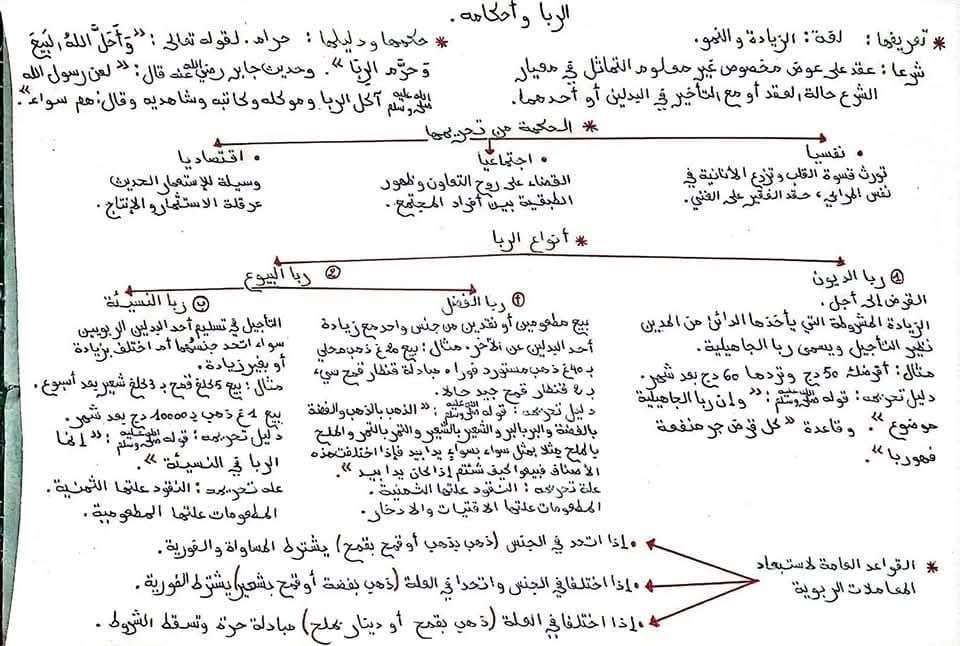 الربا و أحكامه.
* تعريفها: لغة: الزيادة والنمو.
شرعا: عقد على عوض مخصوص غير معلوم التماثل في معيار
الشرع حالة العقد أو مع التأخير في البدلين أو أحدهما.
* حكمها ودليلها: حرام. لقوله تعالى: «وَأَحَلَّ اللهُ البَيعَ
وَحَرَّمَ الرِّبَا». وحديث جابر رضي الله عنه قال: «لعن رسول الله
صلى الله عليه وسلم آكل الربا وموكله وكاتبه وشاهديه وقال: هم سواء».
* الحكمة من تحريمها
• نفسيا
تورث قسوة القلب وتزرع الأنانية في
نفس المرابي، حقد الفقير على الغني.
• اجتماعيا
القضاء على روح التعاون وظهور
الطبقية بين أفراد المجتمع.
• اقتصاديا
وسيلة للإستعمار الحديث
عرقلة الاستثمار والإنتاج.
* أنواع الربا
1 ربا الديون
القرض إلى أجل.
الزيادة المشروطة التي يأخذها الدائن من المدين
نظير التأجيل ويسمى ربا الجاهيلية.
مثال: أقرضك 50 دج وتردها 60 دج بعد شهر.
دليل تحريمه: قوله صلى الله عليه وسلم: «وإن ربا الجاهيلية
موضوع». وقاعدة «كل قرض جر منفعة
فهو ربا».
2 ربا البيوع
أ ربا الفضل
بيع مطعومين أو نقدين من جنس واحد مع زيادة
أحد البدلين عن الآخر. مثال: بيع 20غ ذهب محلي
بـ 40غ ذهب مستورد فورا. مبادلة قنطار قمح سيء
بـ قنطار قمح جيد حالا.
دليل تحريمه: قوله صلى الله عليه وسلم: «الذهب بالذهب والفضة
بالفضة والبر بالبر والشعير بالشعير والتمر بالتمر والملح
بالملح مثلا بمثل سواء بسواء يدا بيد فإذا اختلفت هذه
الأصناف فبيعوا كيف شئتم إذا كان يدا بيد».
علة تحريمه: النقود علتها الثمنية.
المطعومات علتها الاقتيات والادخار.
ب ربا النسيئة
التأجيل في تسليم أحد البدلين الربويين
سواء اتحد جنسهما أم اختلف بزيادة
أو بغير زيادة.
مثال: بيع 5كلغ قمح بـ 3كلغ شعير بعد أسبوع.
بيع 1غ ذهب بـ 10000 دج بعد شهر.
دليل تحريمه: قوله صلى الله عليه وسلم: «إنما
الربا في النسيئة».
علة تحريمه: النقود علتها الثمنية.
المطعومات علتها المطعومية.
* القواعد العامة لاستبعاد
المعاملات الربوية
• إذا اتحد في الجنس (ذهب بذهب أو قمح بقمح) يشترط المساواة والفورية.
• إذا اختلفا في الجنس واتحدا في العلة (ذهب بفضة أو قمح بشعير) يشترط الفورية.
• إذا اختلفا في العلة (ذهب بقمح أو دينار بملح) مبادلة حرة وتسقط الشروط.